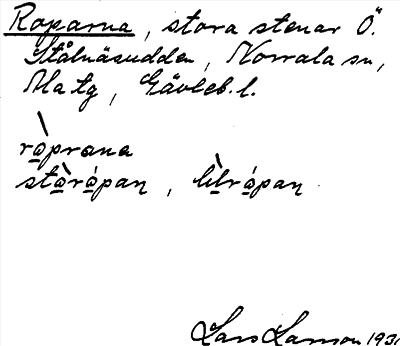 Roparna, stora stenar Ö.
Stålnäsudden, Norrala sn,
Ma tg, Gävleb. l.
ròprana
stòrópaṇ, lìlrópaṇ
Lars Larsson 193